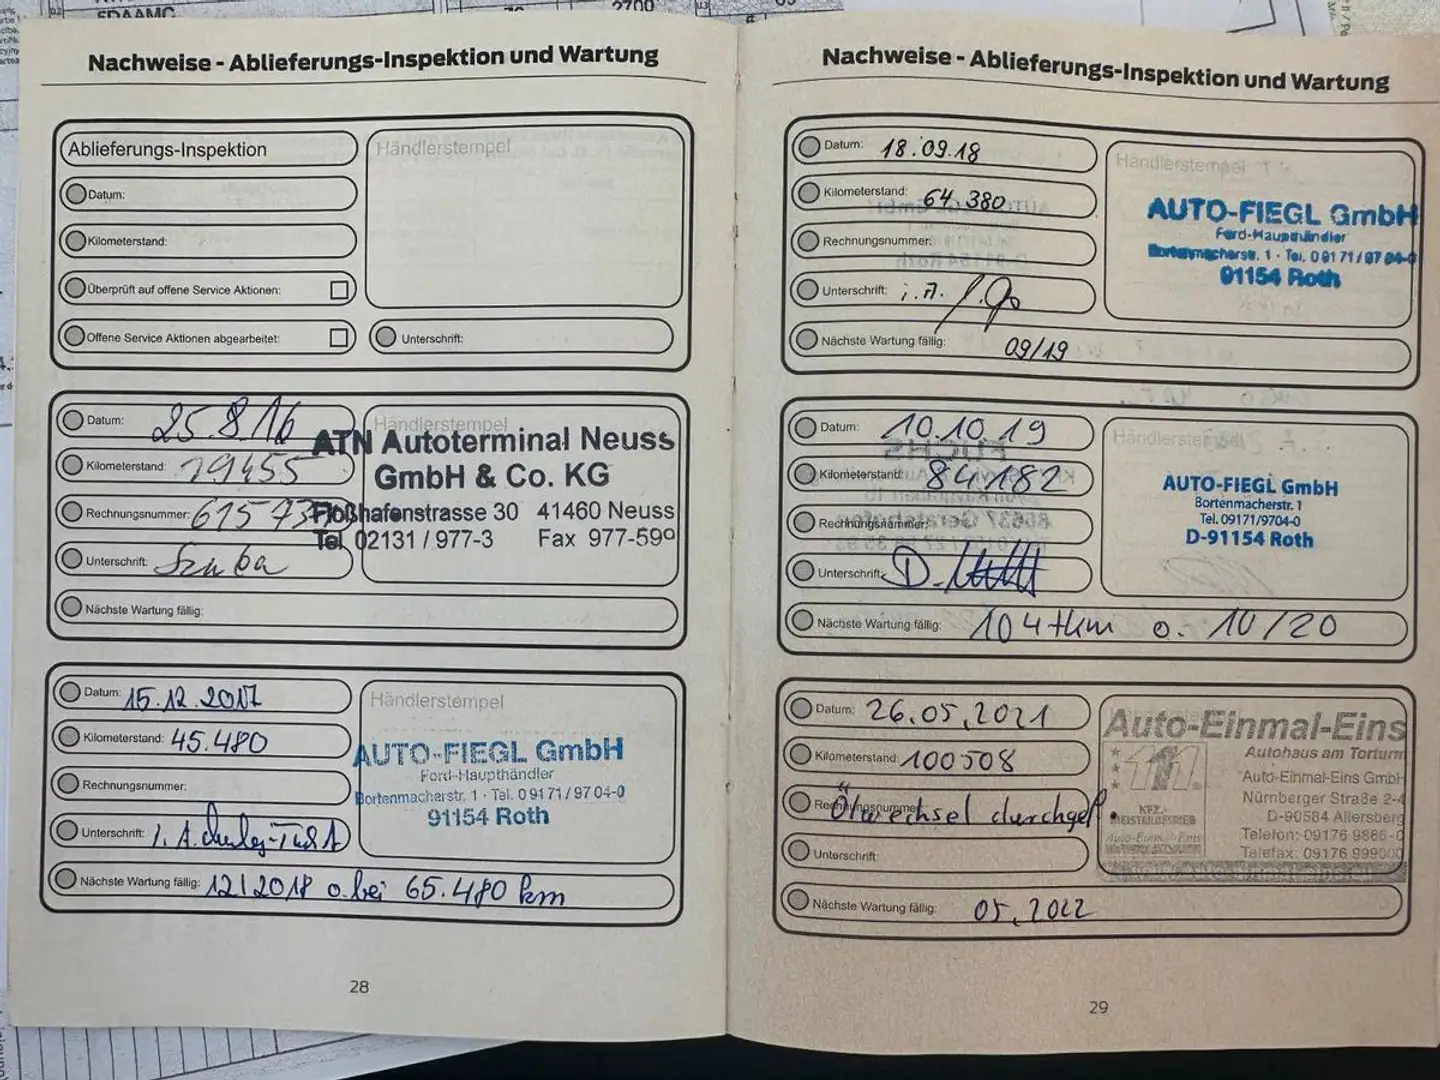 EDAAMC
2700
Nachweise - Ablieferungs-Inspektion und Wartung
Ablieferungs-Inspektion
Händlerstempel
Datum:
Kilometerstand:
Überprüft auf offene Service Aktionen:
Offene Service Aktionen abgearbeitet:
Unterschrift:
Datum: 25.8.16
Kilometerstand: 19455
Rechnungsnummer:
Unterschrift:
Nächste Wartung fällig:
Händlerstempel
ATN Autoterminal Neuss
GmbH & Co. KG
Floßhafenstrasse 30 41460 Neuss
Tel. 02131 / 977-3 Fax 977-599
Datum: 15.12.2017
Kilometerstand: 45.480
Rechnungsnummer:
Unterschrift: i.A.
Nächste Wartung fällig: 12/2018 o. bei 65.480 km
Händlerstempel
AUTO-FIEGL GmbH
Ford-Haupthändler
Bortenmacherstr. 1 · Tel. 0 91 71 / 97 04-0
91154 Roth
28
Nachweise - Ablieferungs-Inspektion und Wartung
Datum: 18.09.18
Kilometerstand: 64.380
Rechnungsnummer:
Unterschrift: i.A.
Nächste Wartung fällig: 09/19
Händlerstempel
AUTO-FIEGL GmbH
Ford-Haupthändler
Bortenmacherstr. 1 · Tel. 0 91 71 / 97 04-0
91154 Roth
Datum: 10.10.19
Kilometerstand: 84.182
Rechnungsnummer:
Unterschrift: D.
Nächste Wartung fällig: 104 tkm o. 10/20
Händlerstempel
AUTO-FIEGL GmbH
Bortenmacherstr. 1
Tel. 09171/9704-0
D-91154 Roth
Datum: 26.05.2021
Kilometerstand: 100508
Rechnungsnummer:
Ölwechsel durchgef
Unterschrift:
Nächste Wartung fällig: 05.2022
Auto-Einmal-Eins
Autohaus am Torturm
Auto-Einmal-Eins GmbH
Nürnberger Straße 2-4
D-90584 Allersberg
Telefon: 09176 9886-0
Telefax: 09176 999000
KFZ.-
MEISTERBETRIEB
29